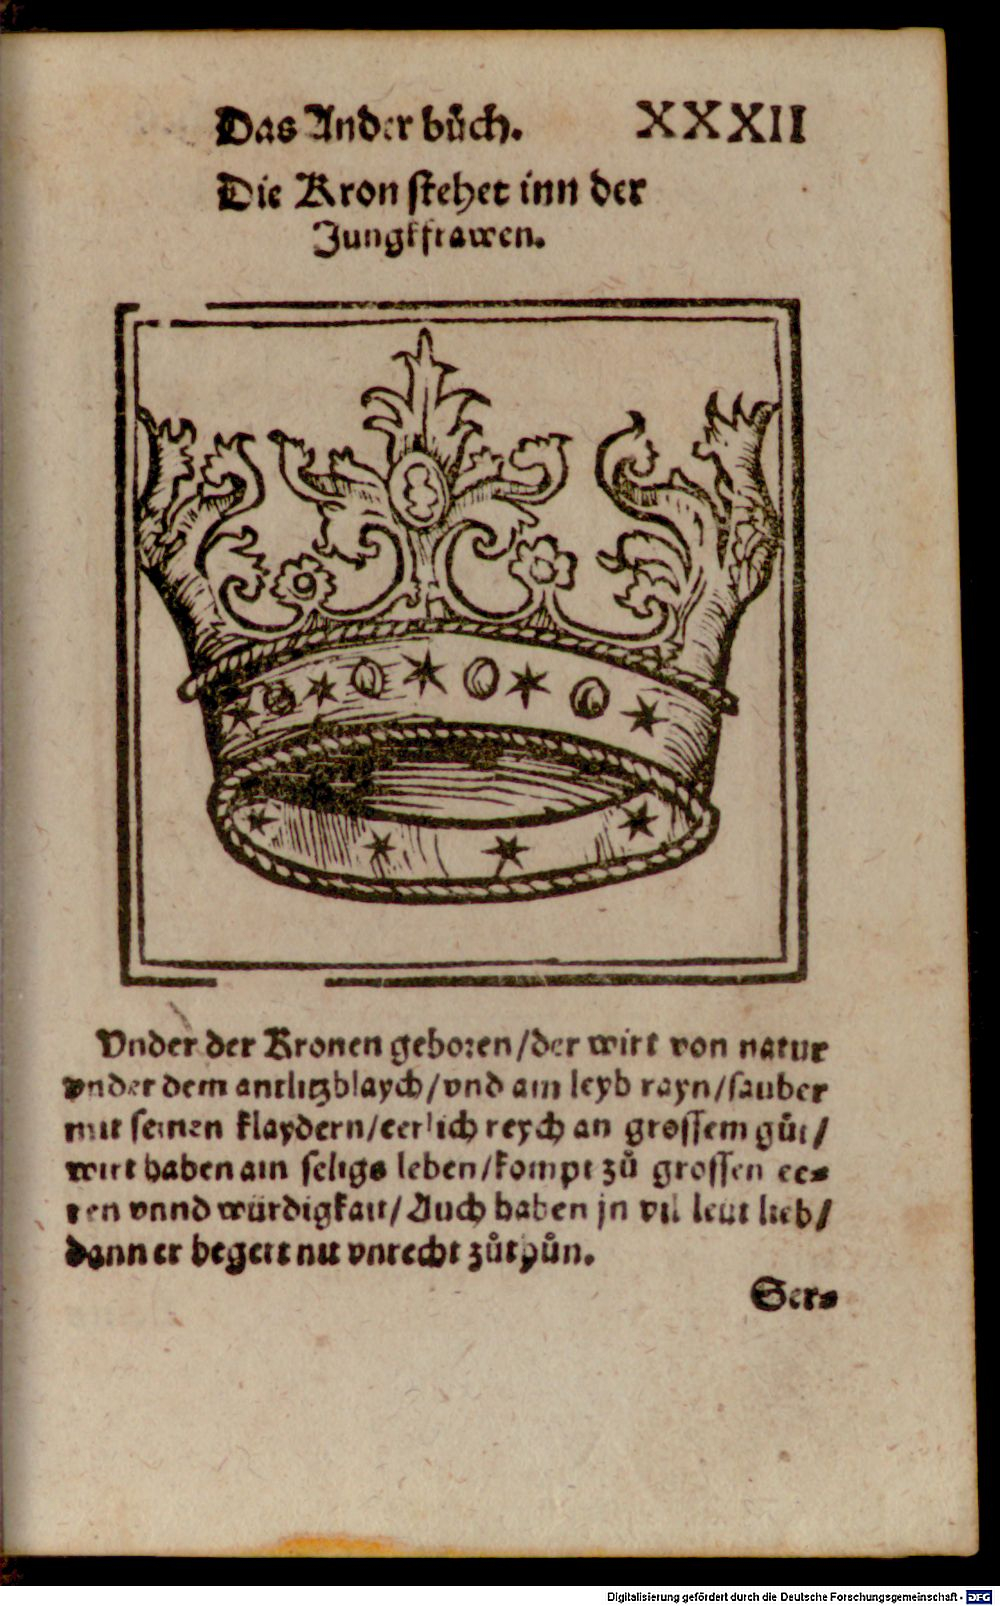 Das Ander bůch. XXXII
Die Kron stehet inn der
Jungkfrawen.
Vnder der Kronen geboren/der wirt von natur
vnder dem antlitzblaych/vnd am leyb rayn/sauber
mit seinen klaydern/eerlich reych an grossem gůt/
wirt haben ain seligs leben/kompt zů grossen ee⸗
ren vnnd würdigkait/Auch haben jn vil leüt lieb/
dann er begert nit vnrecht zůthůn.
Ser⸗
Digitalisierung gefördert durch die Deutsche Forschungsgemeinschaft - DFG